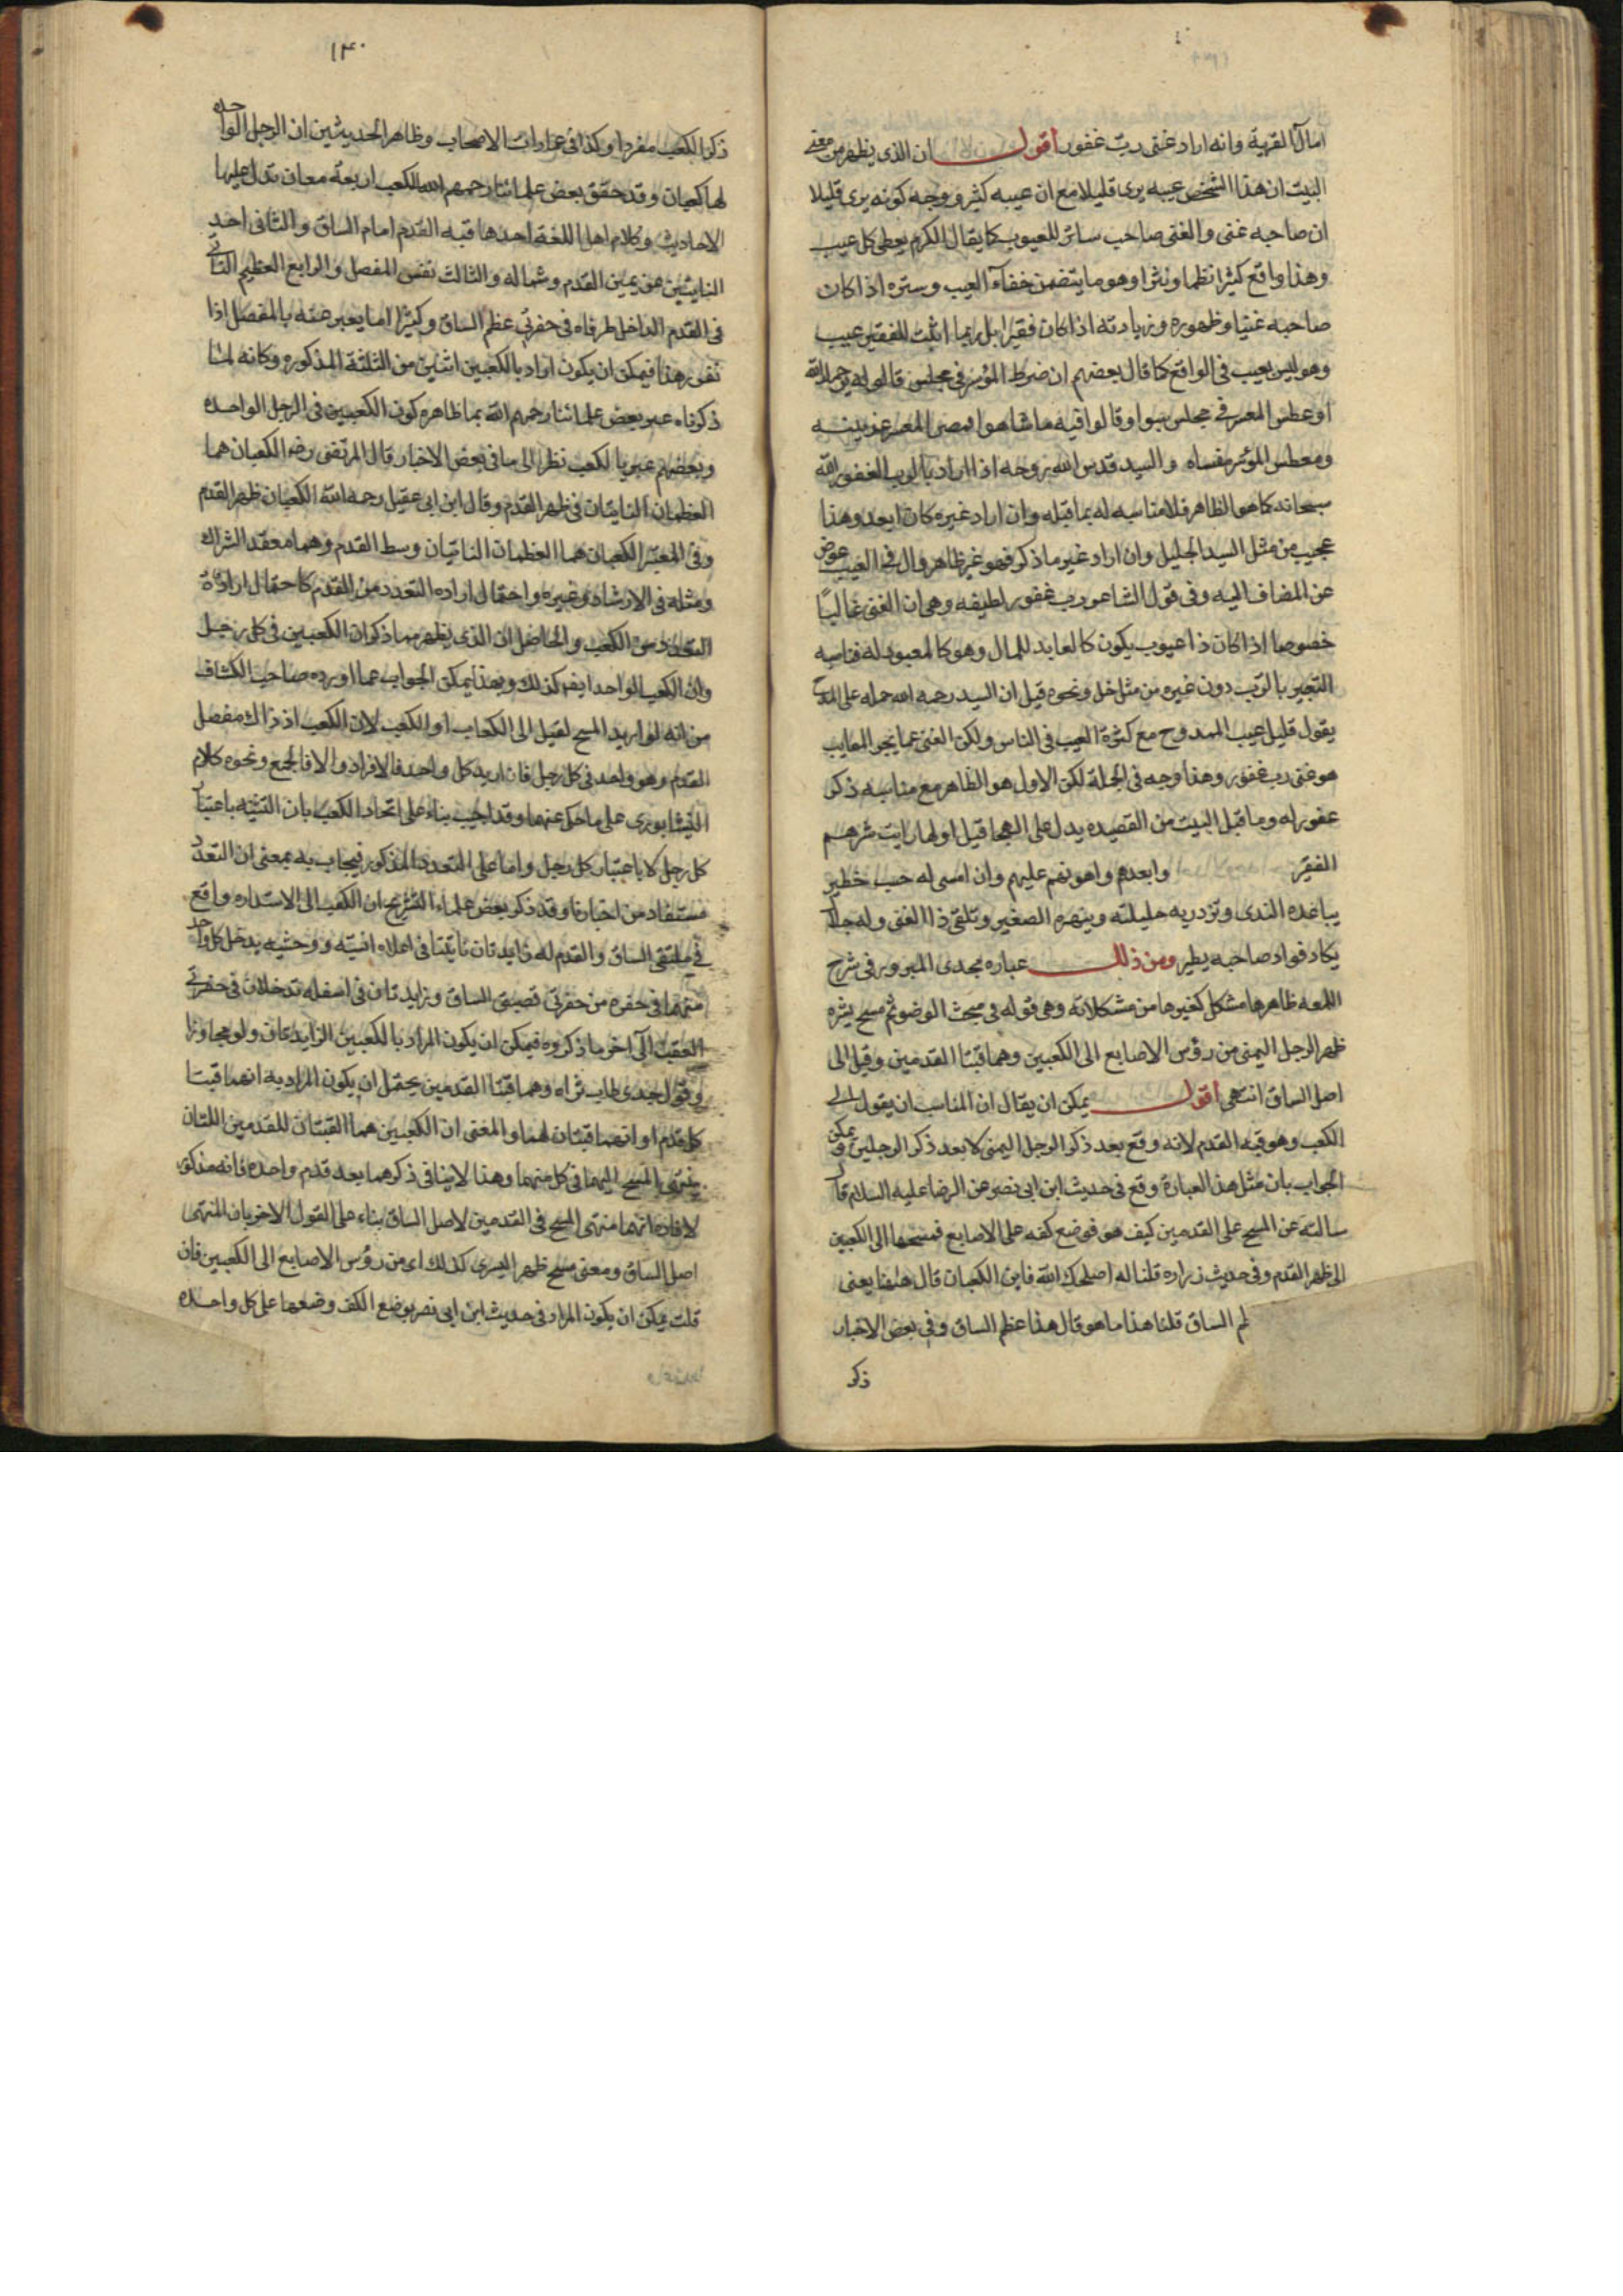 امالا لقرية وانه اراد غنى رب غفور اقول ان الذى يظهر من معنى
البيت ان هذا الشخص عيبه يرى قليلا مع ان عيبه كثير ووجه كونه يرى قليلا
ان صاحبه غنى والغنى صاحب ساتر للعيوب كما يقال الكرم يغطى كل عيب
وهذا واقع كثيرا نظما ونثرا وهو ما يتضمن خفاء العيب وستره اذا كان
صاحبه غنيا وظهوره وزيادته اذا كان فقيرا بل ربما اثبت للفقير عيب
وهو ليس بعيب فى الواقع كما قال بعضهم ان ضرط الموسر فى مجلس قالوا له يرحمك الله
او عطس المعسر فى مجلس سبوا وقالوا فيه ما شاهوا فمضى المعسر عرنينه
ومعطس الموسر مفساه والسيد قدس الله روحه اذا اراد بالرب الغفور الله
سبحانه كما هو الظاهر فلا مناسبه له بما قبله وان اراد غيره كان ابعد وهذا
عجيب من مثل السيد الجليل وان اراد غير ما ذكر فهو غير ظاهر وال فى العيب عوض
عن المضاف اليه وفى قول الشاعر رب غفور لطيفه وهى ان الغنى غالبا
خصوصا اذا كان ذا عيوب يكون كالعابد للمال وهو كالمعبود له فناسبه
التعبير بالرب دون غيره من مثل خل ونحوه قيل ان السيد رحمه الله حمله على المدح
يقول قليل عيب الممدوح مع كثرة العيب فى الناس ولكن الغنى عما يجر المعايب
هو غنى رب غفور وهذا وجه فى الجملة لكن الاول هو الظاهر مع مناسبه ذكر
غفور له وما قبل البيت من القصيده يدل على الهجا قيل اولها رايت شرهم
الفقير وابعدهم واهونهم عليهم وان امسى له حسب خطير
يباعده الندى وتزدريه حليلته وينهره الصغير وتلقى ذا الغنى وله جلال
يكاد فواد صاحبه يطير ومن ذلك عباره لجدى المبرور فى شرح
اللمعه ظاهرها مشكل كغيرها من مشكلاته وهى قوله فى مبحث الوضو ثم مسح بشره
ظهر الرجل اليمنى من رؤس الاصابع الى الكعبين وهما قبتا القدمين وقيل الى
اصل الساق انتهى اقول يمكن ان يقال ان المناسب ان يقول الى
الكعب وهو قبه القدم لانه وقع بعد ذكر الرجل اليمنى لا بعد ذكر الرجلين ويمكن
الجواب بان مثل هذ العبارة وقع فى حديث ابن ابى نصر عن الرضا عليه السلام قال
سالته عن المسح على القدمين كيف هو فوضع كفه على الاصابع فمسحها الى الكعبين
الى ظهر القدم وفى حديث زراره قلنا له اصلحك الله فاين الكعبان قال هاهنا يعنى
الساق قلنا هذا ما هو قال هذا عظم الساق وفى بعض الاخبار
ذكر
١٣٠
ذكر الكعب مفردا وكذا فى عبارات الاصحاب وظاهر الحديثين ان الرجل الواحده
لها كعبان وقد حقق بعض علمائنا رحمهم الله للكعب اربعة معان تدل عليها
الاحاديث وكلام اهل اللغة احدها قبه القدم امام الساق والثانى احد
الناتيين عن يمين القدم وشماله والثالث نفس المفصل والرابع العظيم الناتى
فى القدم الداخل طرفاه فى حفرتى عظم الساق وكثيرا اما يعبر عنه بالمفصل اذا
تقرر هذا فيمكن ان يكون اراد بالكعبين اثنين من الثلثة المذكوره وكانه لما
ذكرناه عبر بعض علمائنا رحمهم الله بما ظاهره كون الكعبين فى الرجل الواحده
وبعضهم عبر بالكعب نظرا الى ما فى بعض الاخبار قال المرتضى رضه الكعبان هما
العظمان الناتيان فى ظهر القدم وقال ابن ابى عقيل رحمه الله الكعبان ظهر القدم
وفى المعتبر الكعبان هما العظمان الناتيان وسط القدم وهما معقد الشراك
ومثله فى الارشاد وغيره واحتمال اراده التعدد من القدم كاحتمال ارادة
التعدد من الكعب والحاصل ان الذى يظهر مما ذكر ان الكعبين فى كل رجل
وان الكعب الواحد ايضا كذلك وبهذا يمكن الجواب عما اورده صاحب الكشاف
من انه لو اريد المسح لقيل الى الكعاب او الكعب لان الكعب اذ ذاك مفصل
القدم وهو واحد فى كل رجل فان اريد كل واحد فالافراد والا فالجمع ونحوه كلام
النيشابورى على ما حكى عنهما وقد اجيب بناء على اتحاد الكعب بان التثنيه باعتبار
كل رجل لا باعتبار كل رجل واما على التعدد المذكور فيجاب به بمعنى ان التعدد
مستفاد من اخبارنا وقد ذكر بعض علماء التشريح ان الكعب الى الاستداره واقع
فى ملتقى الساق والقدم له زايدتان ناتيتا فى اعلاه انسيته ووحشيه يدخل كل واحد
منهما فى حفره من حفرتى قصبتى الساق وزايدتان فى اسفله تدخلان فى حفرتى
العقب الى اخر ما ذكروه فيمكن ان يكون المراد بالكعبين الزايدتان ولو مجاوزا
وقول جدى طاب ثراه وهما قبتا القدمين يحتمل ان يكون المراد به انهما قبتا
كل قدم او انهما قبتان لهما والمعنى ان الكعبين هما القبتان للقدمين اللتان
ينتهى المسح اليهما فى كل منهما وهذا لا ينافى ذكرهما بعد قدم واحده فانه مذكور
لافاده انهما منتهى المسح فى القدمين لاصل الساق بناء على القول الاخر بان المنتهى
اصل الساق ومعنى مسح ظهر اليسرى كذلك اى من رؤس الاصابع الى الكعبين فان
قلت يمكن ان يكون المراد فى حديث ابن ابى نصر بوضع الكف وضعها على كل واحده